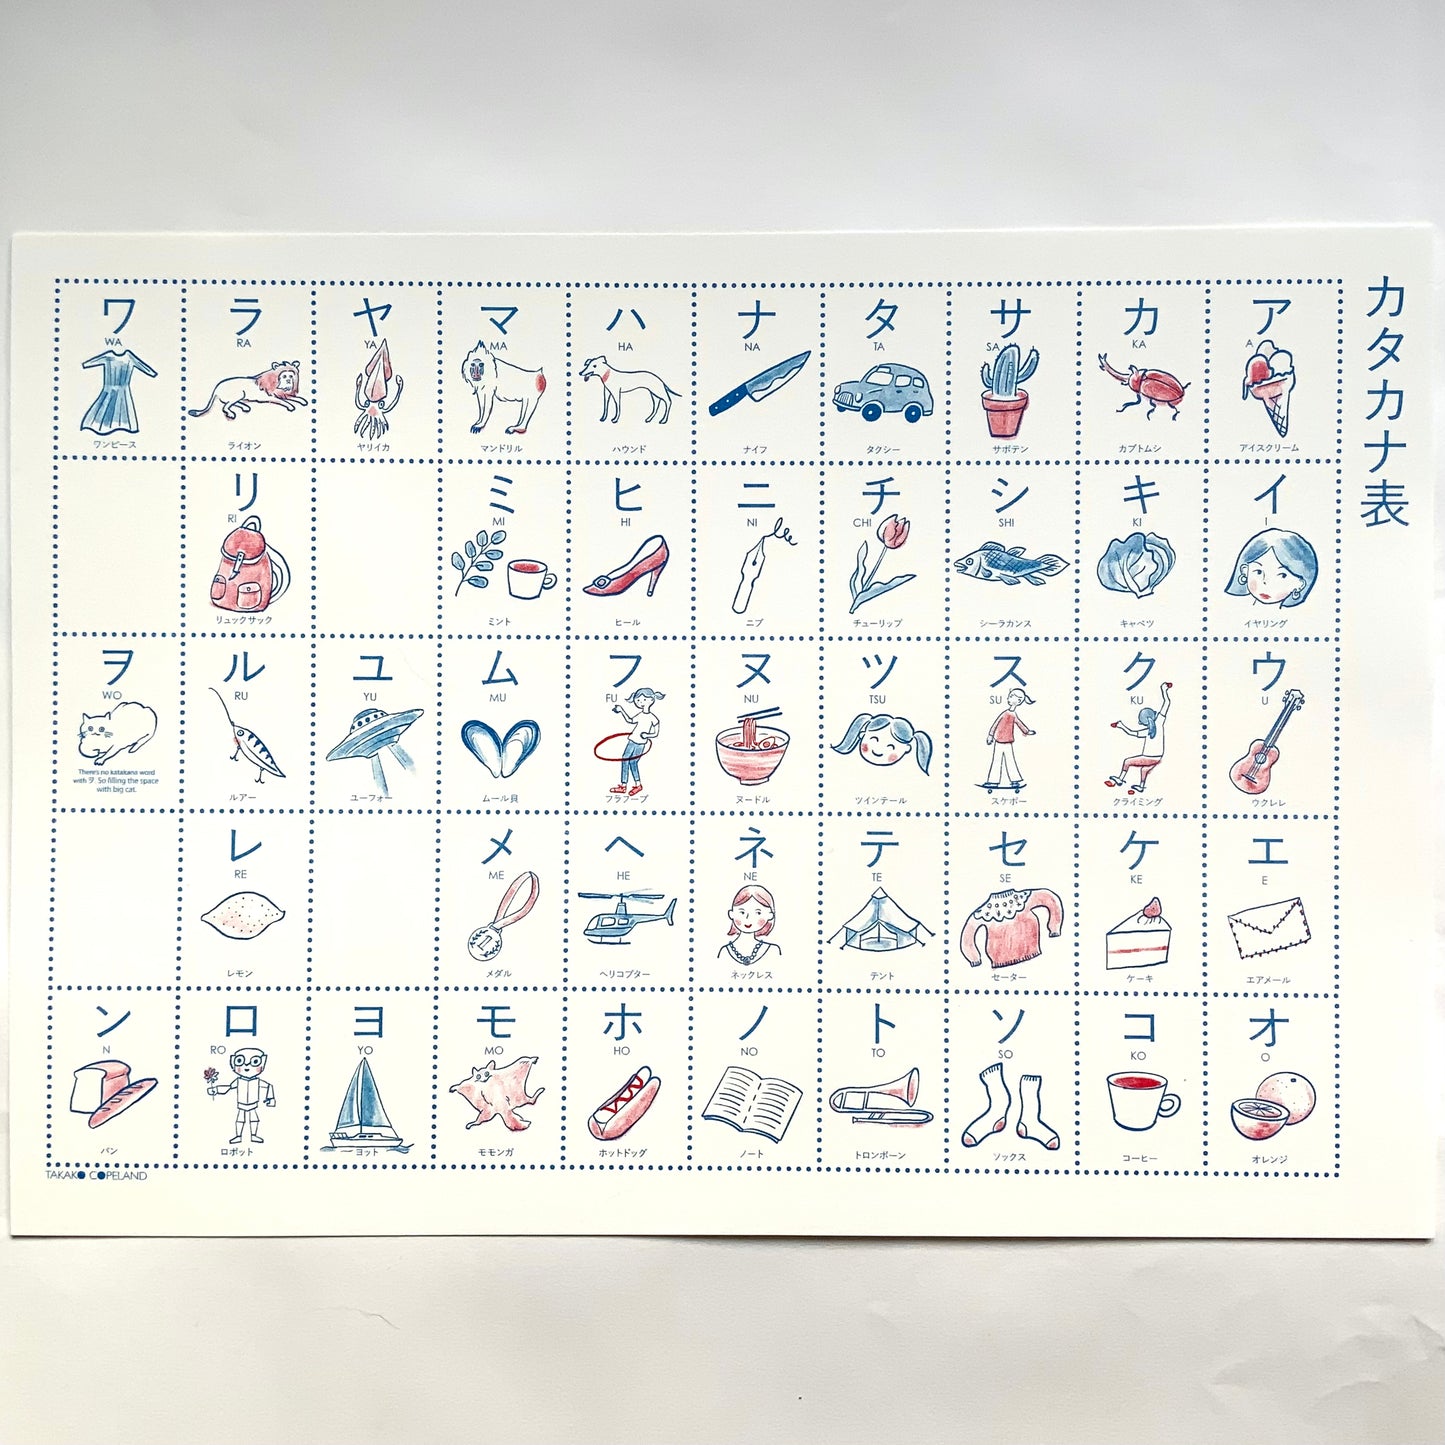 カタカナ表
ア
A
アイスクリーム
イ
I
イヤリング
ウ
U
ウクレレ
エ
E
エアメール
オ
O
オレンジ
カ
KA
カブトムシ
キ
KI
キャベツ
ク
KU
クライミング
ケ
KE
ケーキ
コ
KO
コーヒー
サ
SA
サボテン
シ
SHI
シーラカンス
ス
SU
スケボー
セ
SE
セーター
ソ
SO
ソックス
タ
TA
タクシー
チ
CHI
チューリップ
ツ
TSU
ツインテール
テ
TE
テント
ト
TO
トロンボーン
ナ
NA
ナイフ
ニ
NI
ニブ
ヌ
NU
ヌードル
ネ
NE
ネックレス
ノ
NO
ノート
ハ
HA
ハウンド
ヒ
HI
ヒール
フ
FU
フラフープ
ヘ
HE
ヘリコプター
ホ
HO
ホットドッグ
マ
MA
マンドリル
ミ
MI
ミント
ム
MU
ムール貝
メ
ME
メダル
モ
MO
モモンガ
ヤ
YA
ヤリイカ
ユ
YU
ユーフォー
ヨ
YO
ヨット
ラ
RA
ライオン
リ
RI
リュックサック
ル
RU
ルアー
レ
RE
レモン
ロ
RO
ロボット
ワ
WA
ワンピース
ヲ
WO
There's no katakana word
with ヲ. So filling the space
with big cat.
ン
N
パン
TAKAKO COPELAND